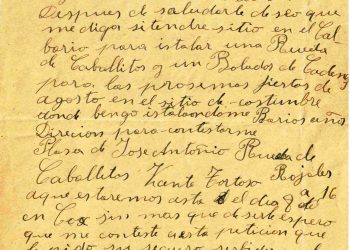 Despues de saludarte deseo que
me diga si tendre sitio en el Cal
bario para istalar una Rueda
de Caballitos y un Bolados de Cadenas
para las prosimas fiestas de
agosto en el sitio de costumbre
donde bengo istalandome Barios años
Direcion para contestarme
Plasa de Jose Antonio Rueda de
Caballitos Zante Tortoso Rojales
aqui estaremos asta el dia 8 al 16
en Cox sin mas que decirte espero
que me conteste a esta peticion que
le pido su seguro servidor